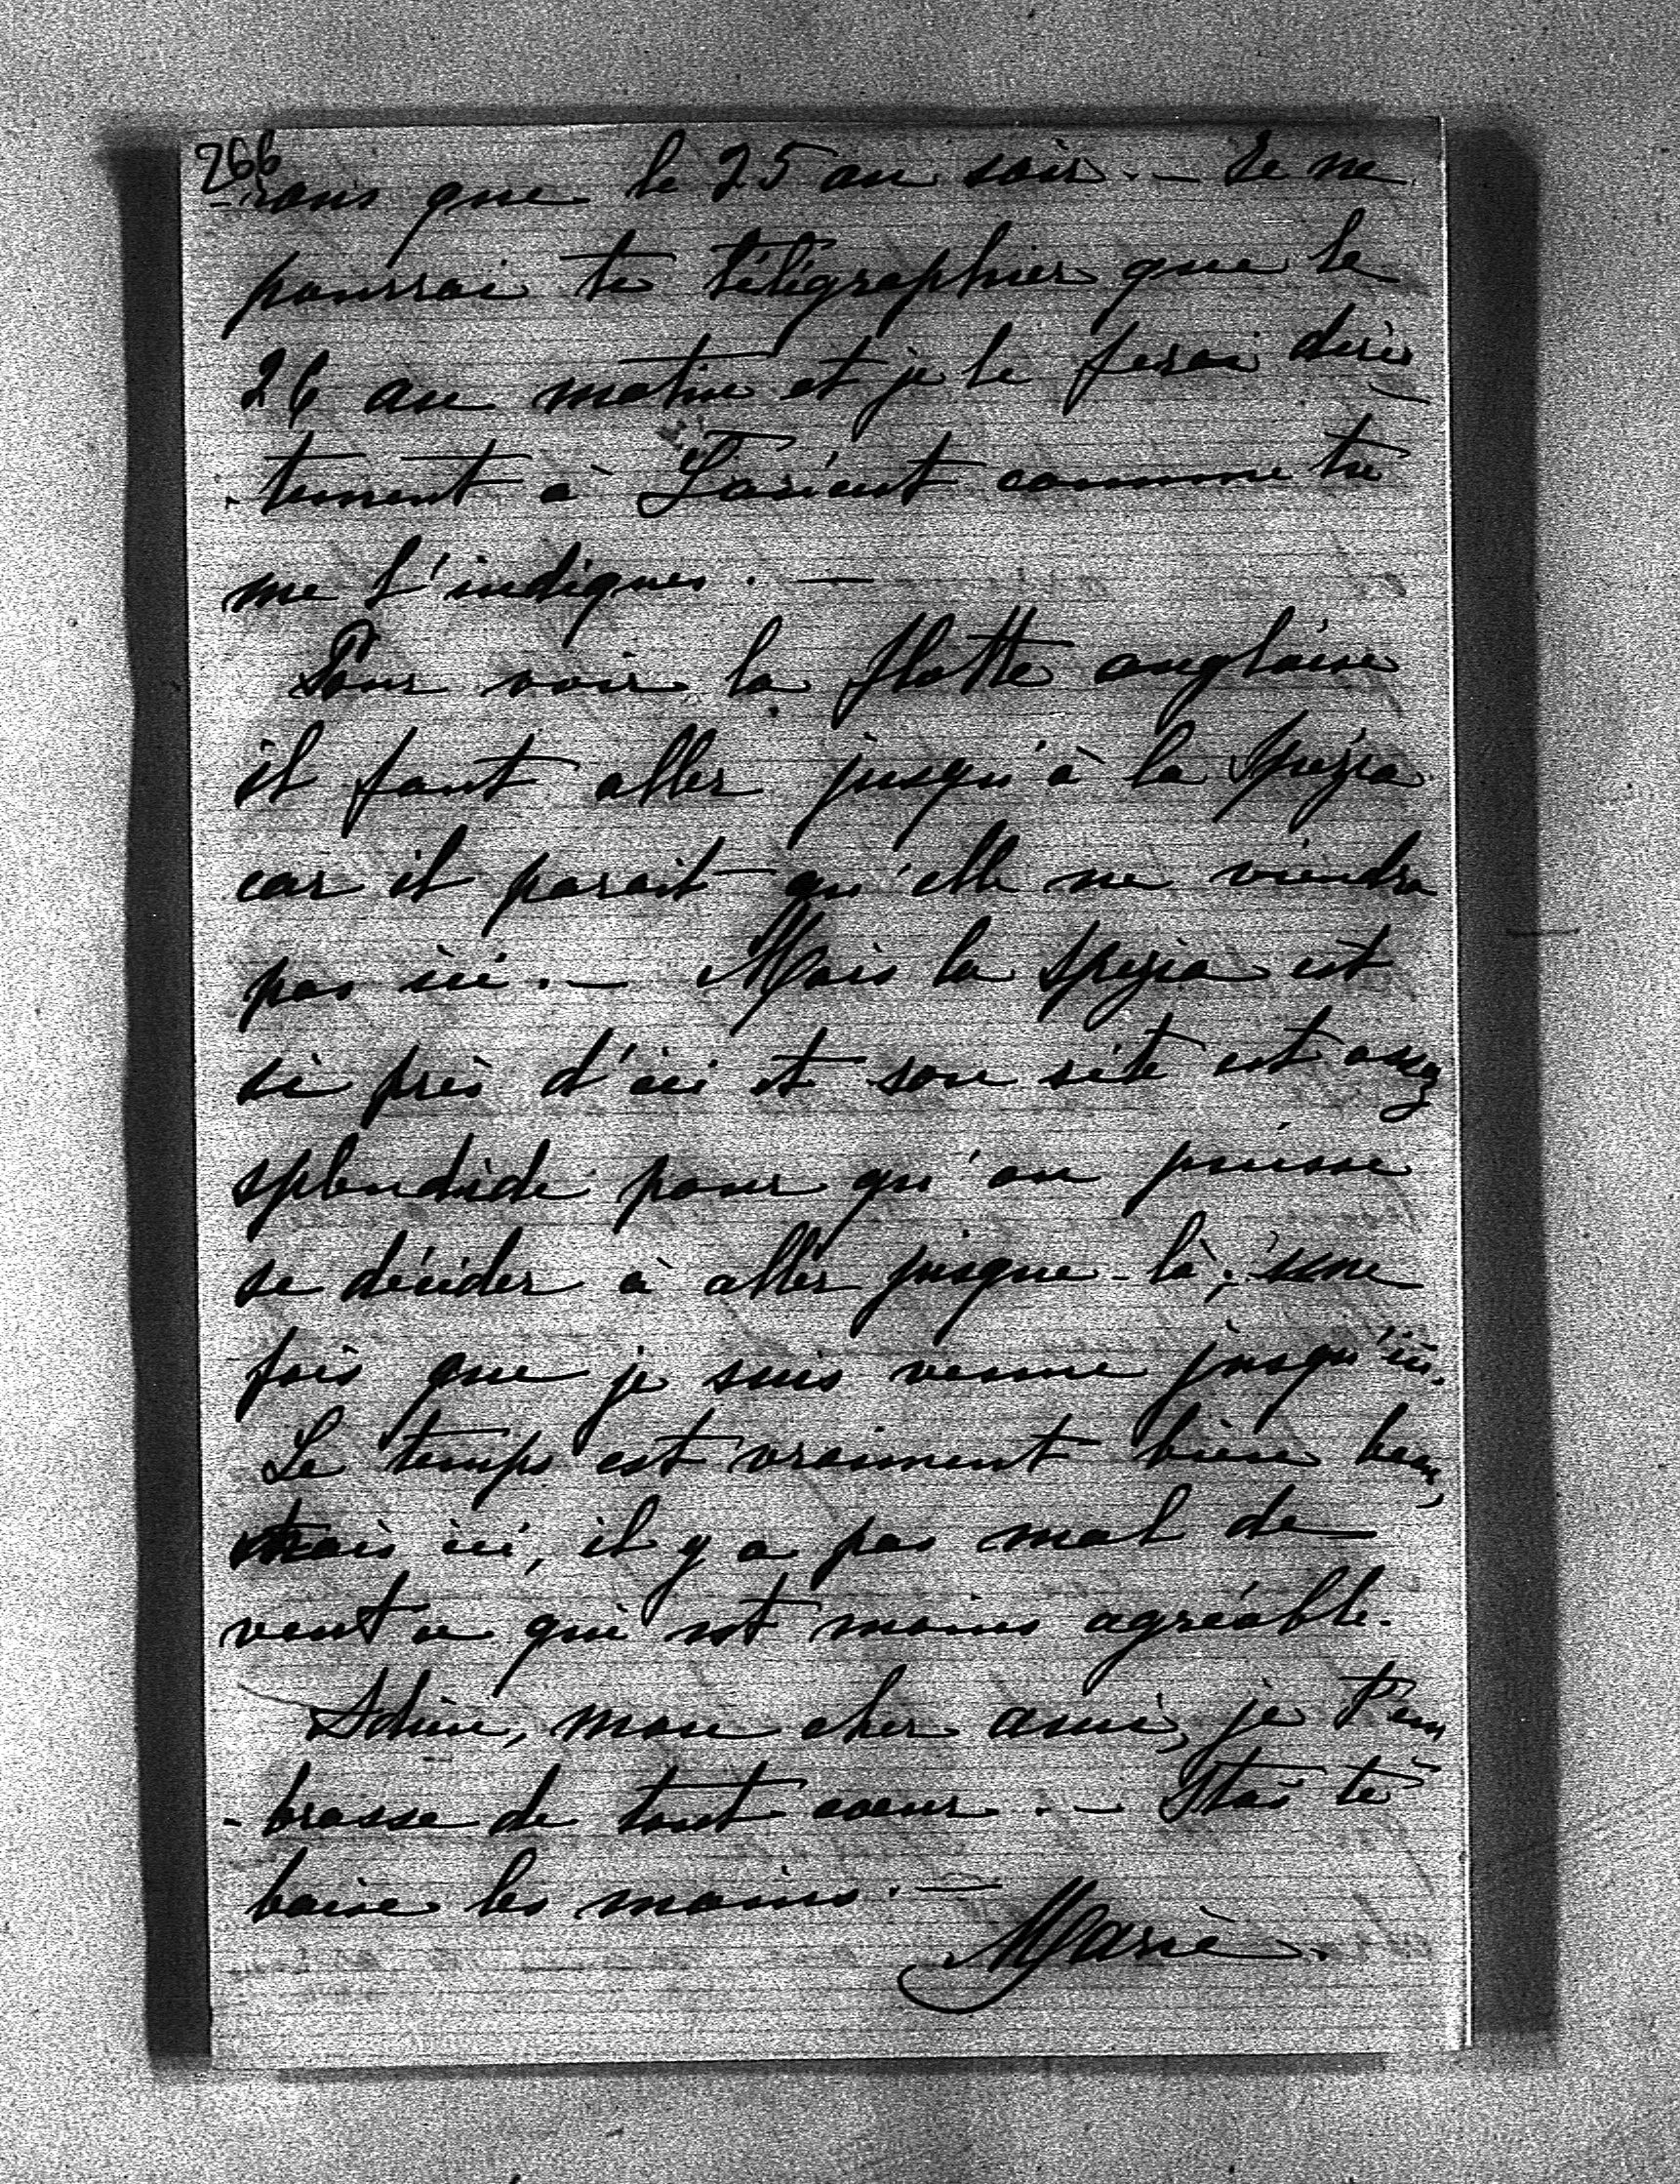 266
-rons que le 25 au soir. — Je ne
pourrai te télégraphier que le
26 au matin et je le ferai direc
-tement à Lorient comme tu
me l'indiques. —
Pour voir la flotte anglaise
il faut aller jusqu'à la Spezia
car il parait qu'elle ne viendra
pas ici. — Mais la Spezia est
si près d'ici et son site est assez
splendide pour qu'on puisse
se décider à aller jusque-là; une
fois que je suis venue jusqu'ici.
Le temps est vraiment bien beau,
mais ici, il y a pas mal de
vent ce qui est moins agréable.
Adieu, mon cher ami, je t'em
-brasse de tout coeur. — Staï te
baise les mains. —
Marie.